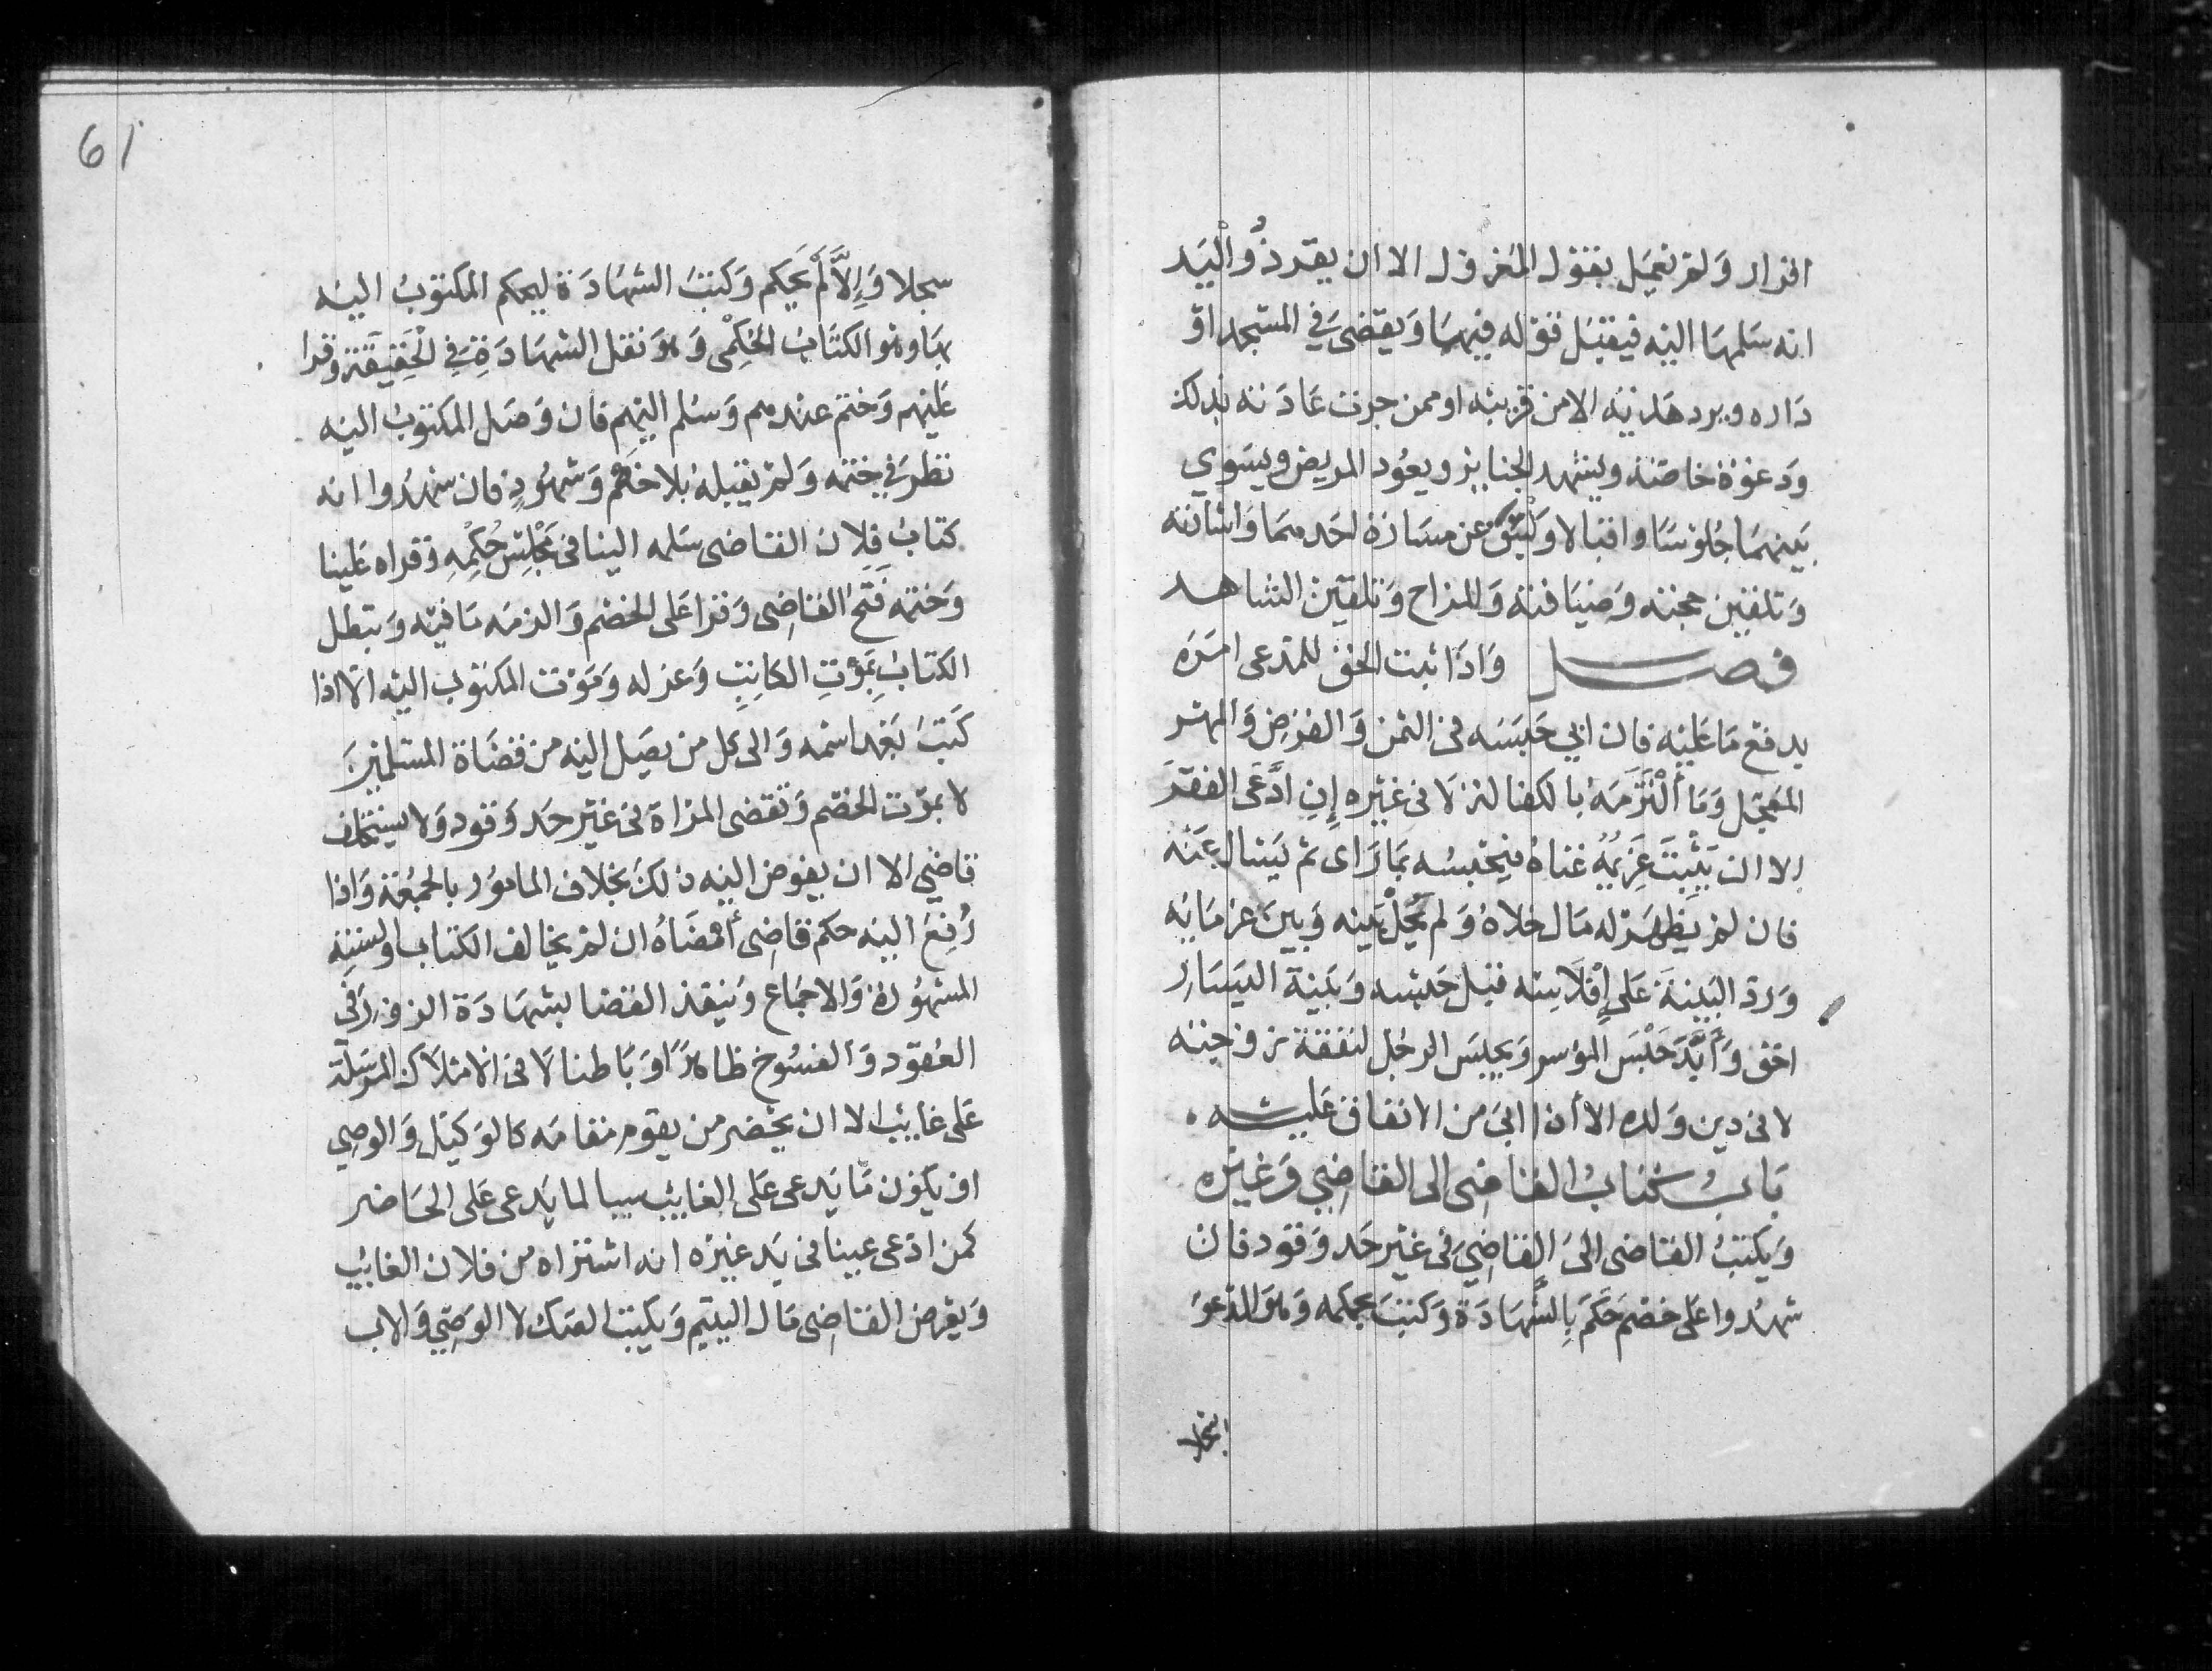 اقرار ولم يعمل بقول المعزول الا ان يقر ذُو الْيد
انه سلمها اليه فيقبل قوله فيهما ويقضى في المسجد او
داره ويرد هديته الا من قريبه او ممن جرت عادته بذلك
ودعوة خاصّة ويشهد الجنايز ويعُود المريض ويسوي
بينهما جُلوسًا واقبالا وليتق عن مسارة احدهما واشارته
وتلقين حجته وضيافته والمزاح وتلقين الشاهد
فصل واذا ثبت الحق للمدعى امره
بدفع ما عليه فان ابى حبسه فى الثمن والقرض والمهر
المعجّل وما الْتَزَمَهُ بالكفالة لا فى غيره إِنِ ادَّعَى الفقر
الا ان يَثْبِتَ غَرِيمُهُ غناهُ فيحبسُه بما راى ثم يَسال عنه
فان لم يظهر له مال خلاهُ ولم يَحُلْ بينه وبين غرمايه
ورد البينة عَلى إِفْلَاسِه قبل حبسه وبينة اليسار
احق وَأَبَّدَ حَبْسَ الموسر ويحبس الرجُل لنفقة زوجته
لا فى دين ولده الا أن ابى من الانفاق عليه
بابُ كتابُ القاضى الى القاضِي وغيره
ويكتبُ القاضى الى القاضِي فى غير حد وقود فان
شهدُوا على خصم حَكَمَ بِالشَّهَادَة وكتبَ بحكمه وهو المدعو
سجلا
61
سجلا وَإِلَّا لَمْ يحكم وكتبَ الشهادة ليحكم المكتوبُ اليه
بها وهو الكتابُ الحُكْمِى وهو نقل الشهادةِ في الْحَقِيقَة وقرا
عليهم وختم عندهم وسُلم اليهم فان وصل المكتوبُ اليه
نظر في ختمه ولم يقبله بلا خَصْم وشهُودٍ فان شهدُوا انه
كتابُ فلان القاضى سَلمه الينا فى مَجْلِسِ حُكْمِهِ وقراه علينا
وختمه فَتَحَ القاضِى وقرا على الخصم والزمه ما فيه ويبطل
الكتابُ بِمَوْتِ الكاتِبِ وعزله وموت المكتوب اليه الا اذا
كَتبَ بَعْد اسمه والى كل من يصل اليه من قضاة المسلمين
لا بموت الخصم وتقضى المراة فى غير حد وقود ولا يستخلف
قاضي الا ان يفوض اليه ذلك بخلاف المامور بالجمُعة واذا
رُفِعَ اليه حكم قاضِى أَمْضَاهُ ان لم يخالف الكتاب او السنة
المشهُورة والاجماع وينفذ القضا بشهادة الزور فى
العُقود والفسُوخ ظاهرًا وباطنا لا فى الاملاك المرسلة
على غايب الا ان يحضر من يقوم مقامه كالوكيل والوصي
او يكون ما يدعى على الغايب سببا لما يدعى على الحاضر
كمن ادعى عينا فى يد غيره انه اشتراه من فلان الغايب
ويقرض القاضِى مال اليتيم ويكتب الصك لا الوصي والاب